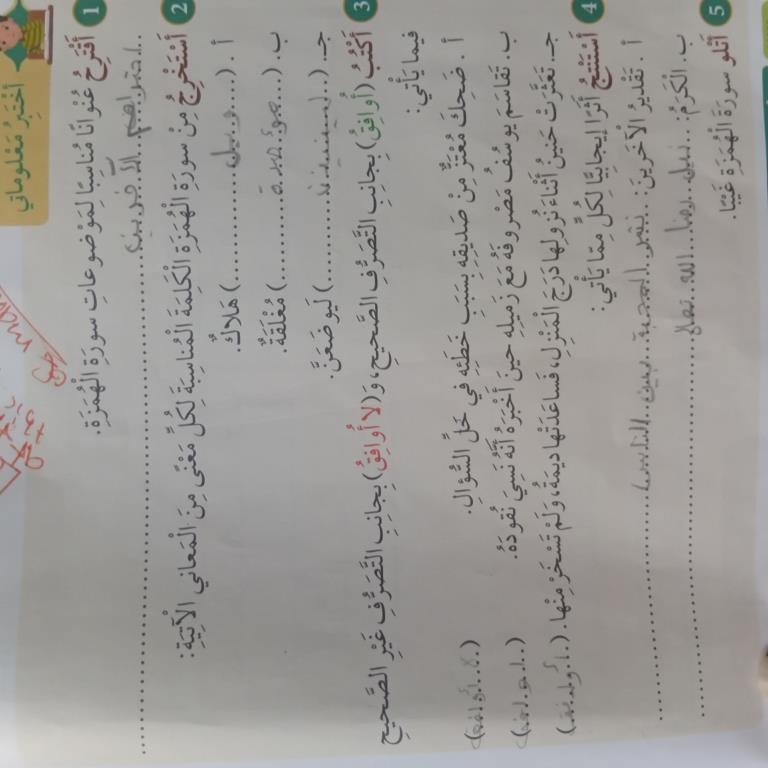 أَخْتَبِرُ مَعْلوماتي
1 أَقْتَرِحُ عُنْوانًا مُناسِبًا لِمَوْضوعاتِ سورَةِ الْهُمَزَةِ.
احترام الآخرين
2 أَسْتَخْرِجُ مِنْ سورَةِ الْهُمَزَةِ الْكَلِمَةَ الْمُناسِبَةَ لِكُلِّ مَعْنًى مِنَ الْمَعاني الْآتِيَةِ:
أ . (...ويل...) هَلاكٌ.
ب. (...مؤصدة...) مُغْلَقَةٌ.
جـ. (...لينبذن...) لَيوضَعَنَّ.
3 أَكْتُبُ (أُوافِقُ) بِجانِبِ التَّصَرُّفِ الصَّحيحِ، وَ(لا أُوافِقُ) بِجانِبِ التَّصَرُّفِ غَيْرِ الصَّحيحِ
فيما يَأْتي:
أ . ضَحِكَ مُعْتَزٌّ مِنْ صَديقِهِ بِسَبَبِ خَطَئِهِ في حَلِّ السُّؤالِ. (لا أوافق)
ب. تَقاسَمَ يوسُفُ مَصْروفَهُ مَعَ زَميلِهِ حينَ أَخْبَرَهُ أَنَّهُ نَسِيَ نُقودَهُ. (اوافق)
جـ. تَعَثَّرَتْ حَنينُ أَثْناءَ نُزولِها دَرَجَ الْمَنْزِلِ، فَساعَدَتْها ديمَةُ، وَلَمْ تَسْخَرْ مِنْها. (أوافق)
4 أَسْتَنْتِجُ أَثَرًا إيجابِيًّا لِكُلٍّ مِمّا يَأْتي:
أ . تَقْديرُ الْآخَرينَ: نشر المحبة بين الناس
ب. الْكَرَمُ: نيل رضا الله تعالى
5 أَتْلو سورَةَ الْهُمَزَةِ غَيْبًا.